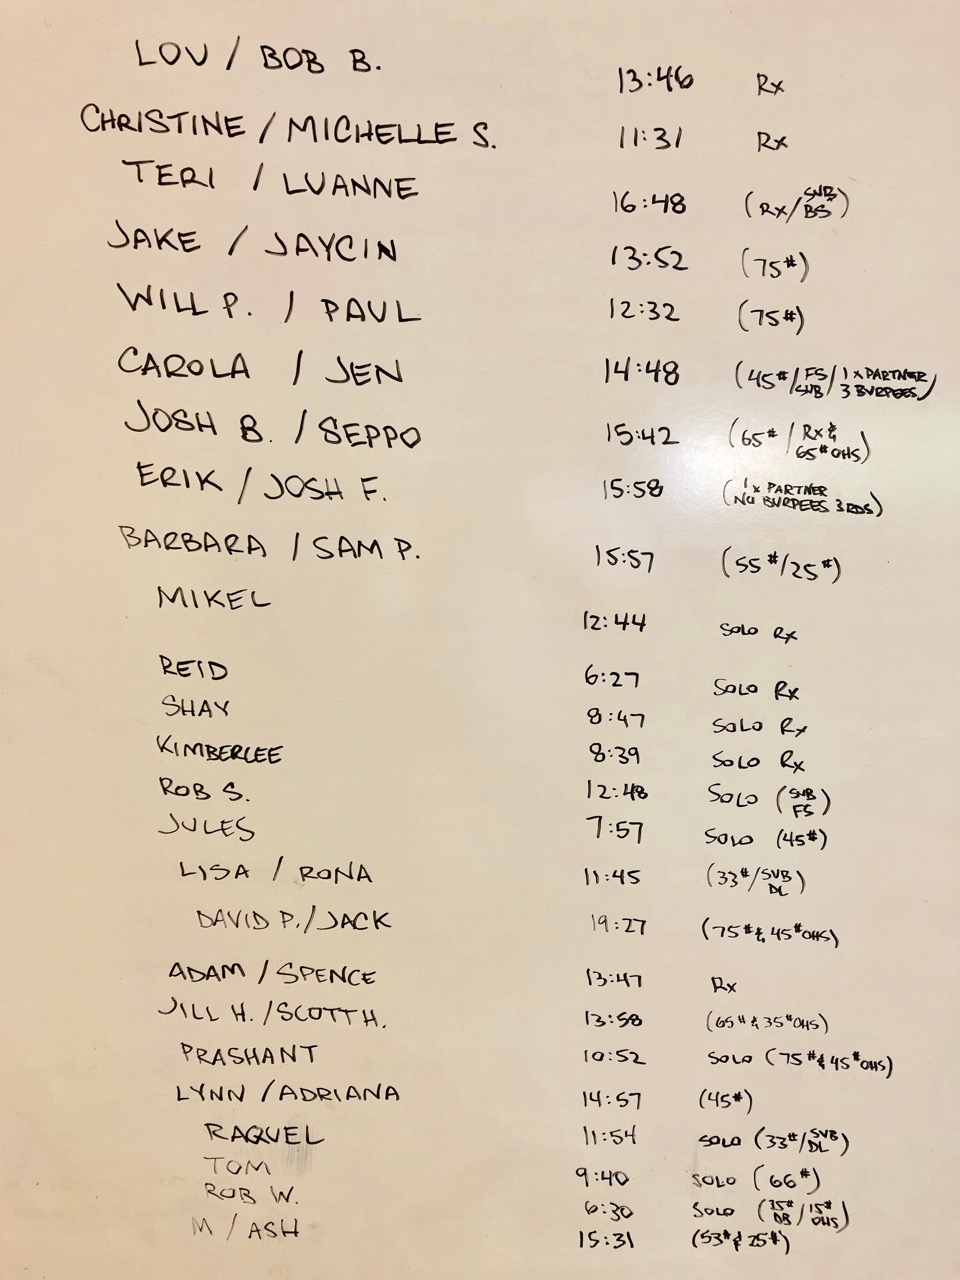 LOU / BOB B. 13:46 Rx
CHRISTINE / MICHELLE S. 11:31 Rx
TERI / LUANNE 16:48 (Rx/SUB BS)
JAKE / JAYCIN 13:52 (75#)
WILL P. / PAUL 12:32 (75#)
CAROLA / JEN 14:48 (45#/FS SUB/1 x PARTNER 3 BURPEES)
JOSH B. / SEPPO 15:42 (65#/Rx & 65# OHS)
ERIK / JOSH F. 15:58 (1 x PARTNER NO BURPEES 3RDS)
BARBARA / SAM P. 15:57 (55#/25#)
MIKEL 12:44 SOLO Rx
REID 6:27 SOLO Rx
SHAY 8:47 SOLO Rx
KIMBERLEE 8:39 SOLO Rx
ROB S. 12:48 SOLO (SUB FS)
JULES 7:57 SOLO (45#)
LISA / RONA 11:45 (33#/SUB DL)
DAVID P./JACK 19:27 (75# & 45# OHS)
ADAM / SPENCE 13:47 Rx
JILL H. / SCOTT H. 13:58 (65# & 35# OHS)
PRASHANT 10:52 SOLO (75# & 45# OHS)
LYNN / ADRIANA 14:57 (45#)
RAQUEL 11:54 SOLO (33#/SUB DL)
TOM 9:40 SOLO (66#)
ROB W. 6:30 SOLO (35# DB/15# OHS)
M / ASH 15:31 (53# & 25#)